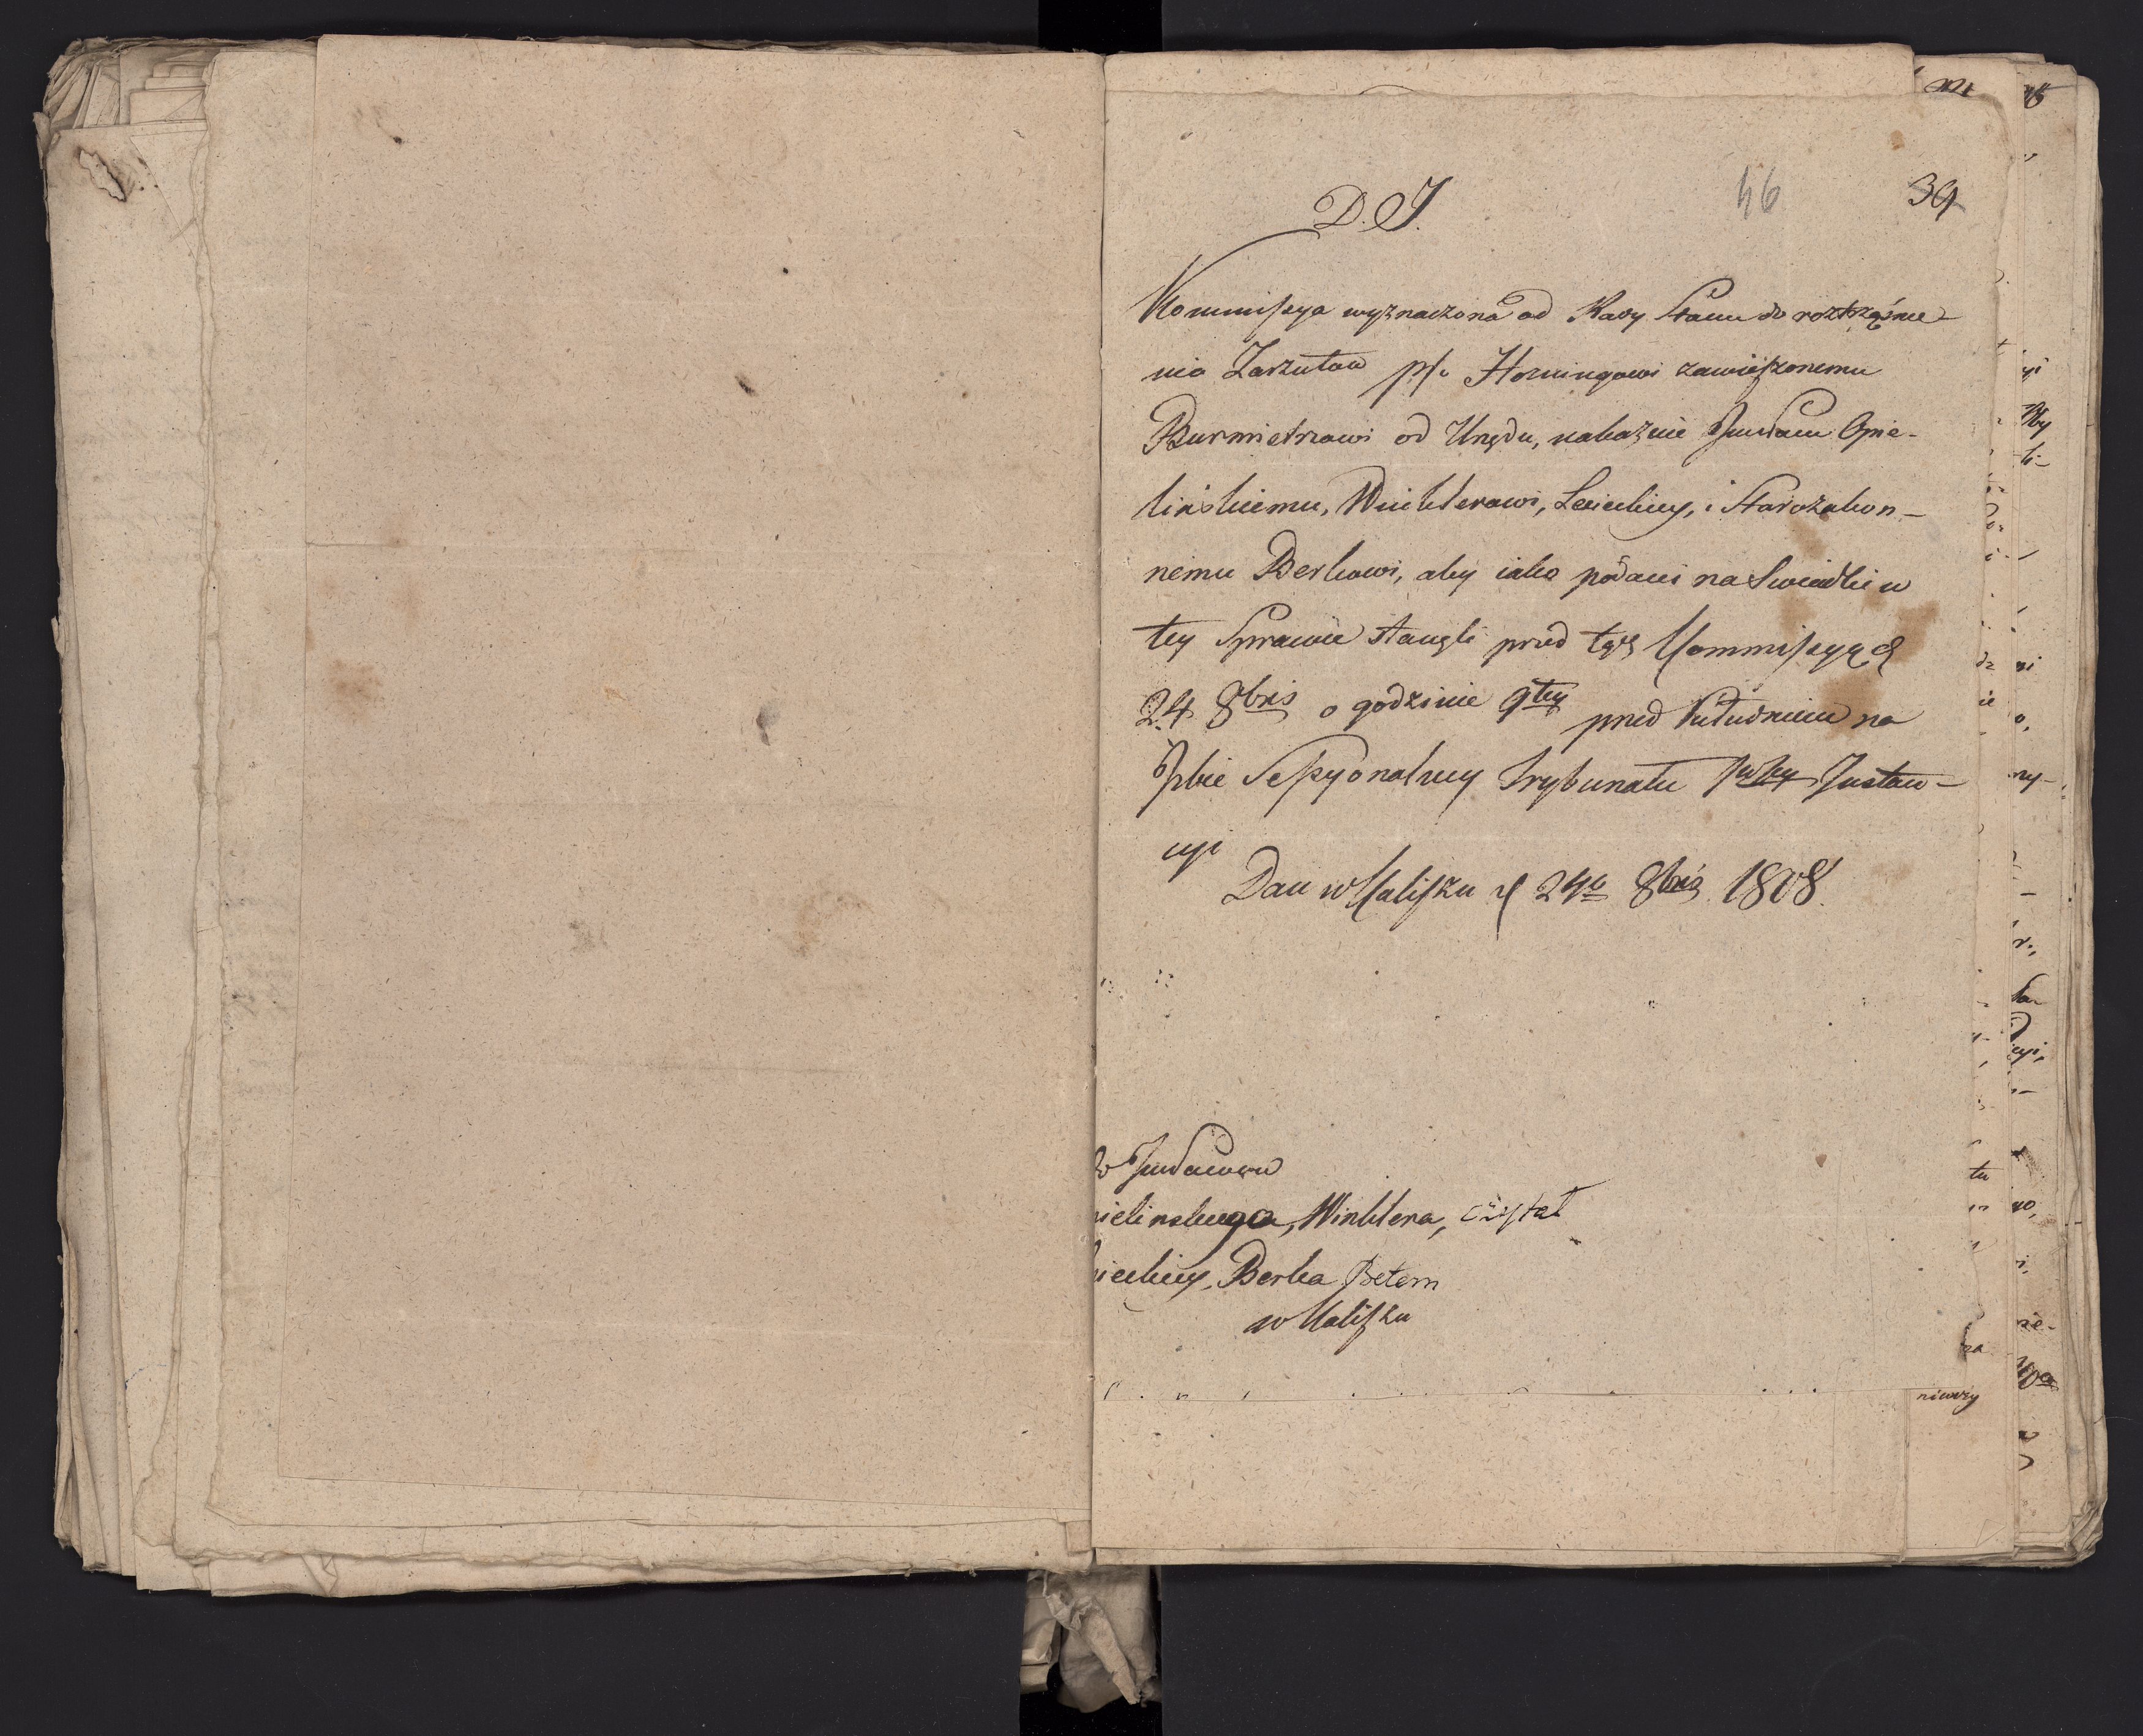 D. J.
46
39
Kommissya wyznaczona od Rady Stanu do roztrząśnie-
nia Zarzutów Horningowi zawieszonemu
Burmistrzowi od Urzędu, nakazuie Opie-
lińskiemu, Winklerowi, i Starozakon-
nemu Berkowi, aby iako podani na Swiadków
tey Sprawie stanęli przed tąż Kommissyą d
24 8bris o godzinie 9tey przed Południem na
Izbie Sessyonalney Trybunału Instan-
cyi
Dan w Kaliszu d 24o 8bris 1808.
ielinskiego, Winklera, czytał
Berka Betem
w Kaliszu